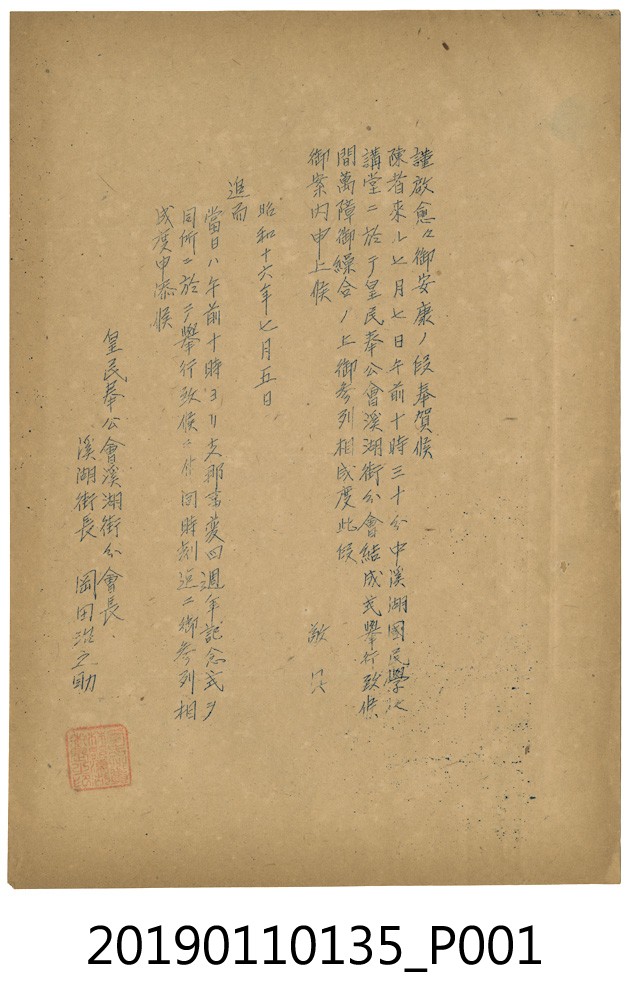 謹啟愈々御安康ノ段奉賀候
陳者來ル七月七日午前十時三十分中溪湖國民學校
講堂ニ於テ皇民奉公會溪湖街分會結成式擧行致候
間萬障御繰合ノ上御參列相成度此段
御案内申上候
敬具
昭和十六年七月五日
追而
當日ハ午前十時ヨリ支那事變四週年記念式ヲ
同所ニ於テ擧行致候ニ付同時刻迄ニ御參列相
成度申添候
皇民奉公會溪湖街分會長
溪湖街長 岡田治之助
20190110135_P001